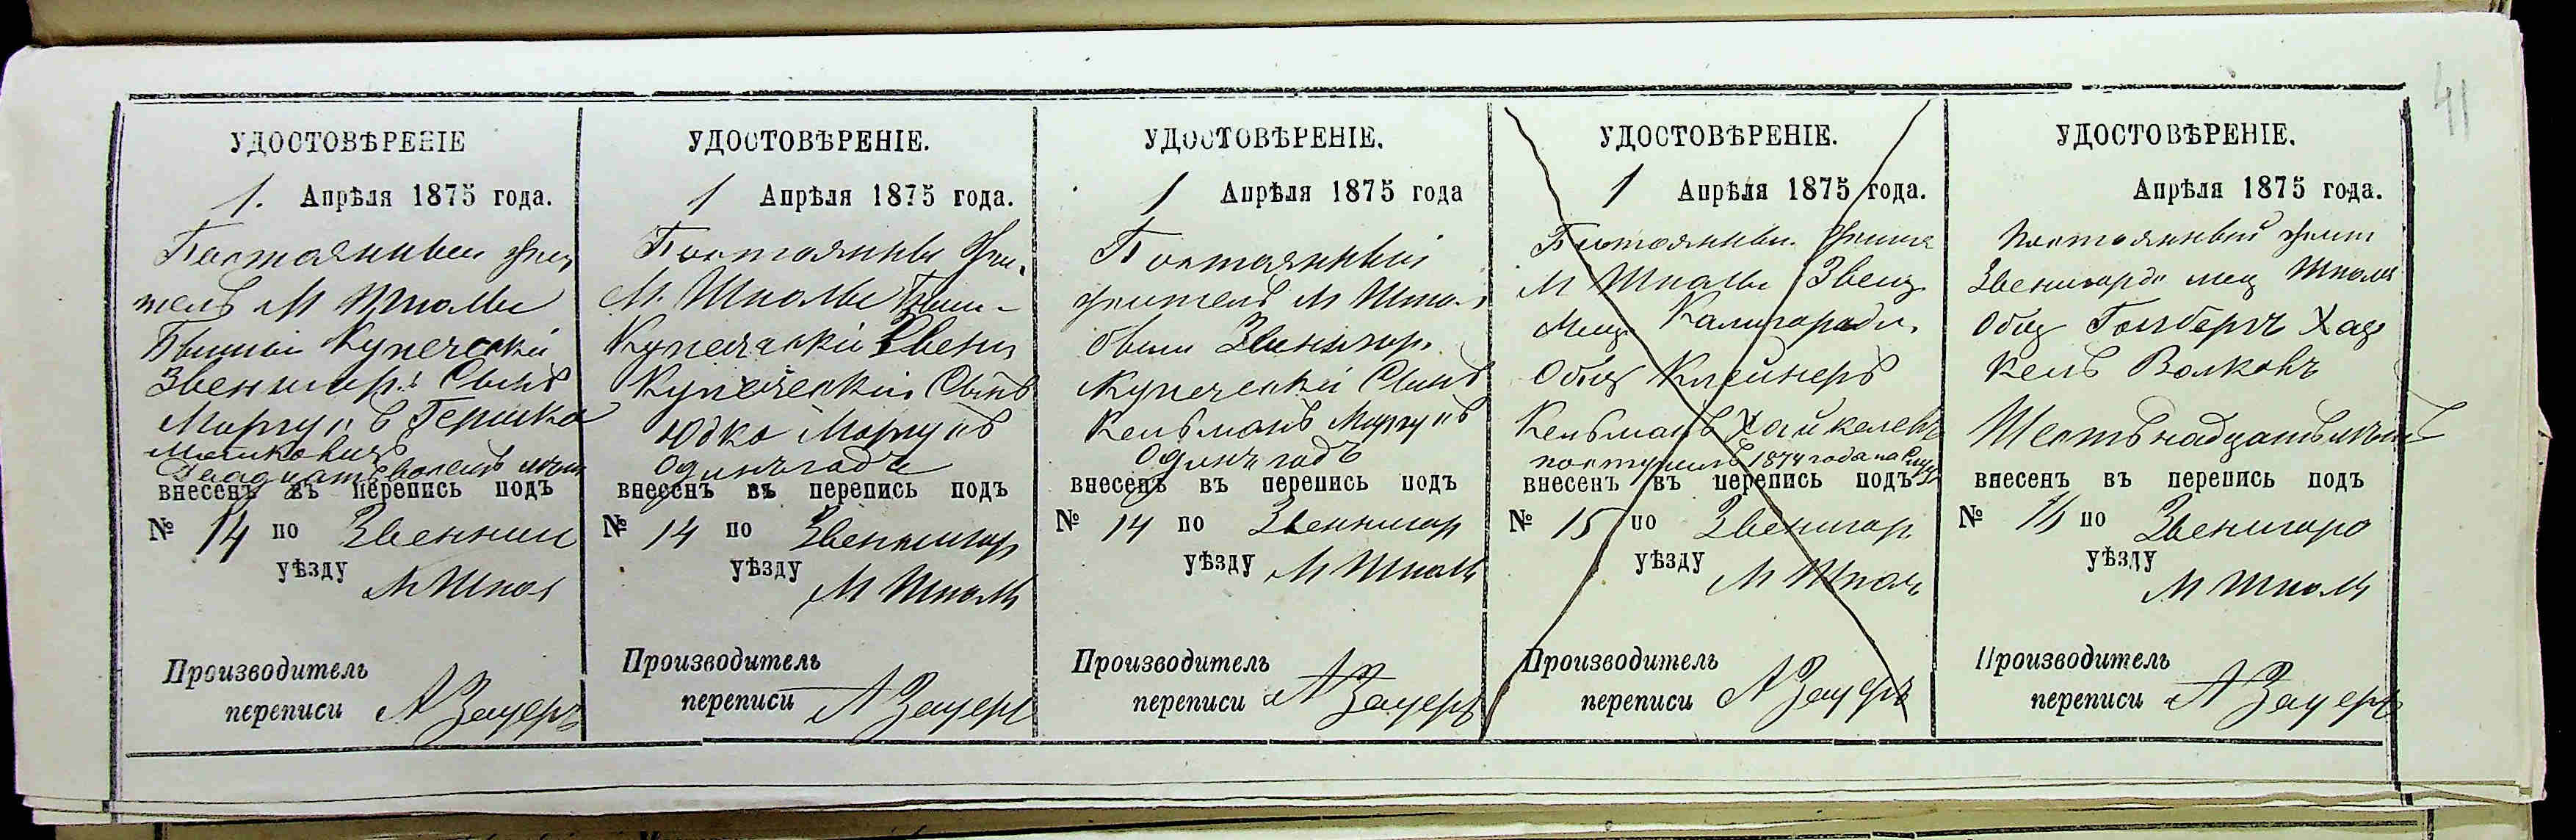 41
УДОСТОВѢРЕНІЕ
1. Апрѣля 1875 года.
Постоянный жи
тель М Шполы
Бывшій Купеческій
Звенигор. Сынъ
Моргунъ Гершко
Мошковичъ
Двадцать восемь лѣтъ
внесенъ въ перепись подъ
№ 14 по Звениг
уѣзду М Шпол
Производитель
переписи А Зауеръ
УДОСТОВѢРЕНІЕ.
1 Апрѣля 1875 года.
Постоянны жи.
М. Шполы Бывш-
Купеческій Звени
Купеческій Сынъ
Юдко Моргунъ
Одинъ годъ
внесенъ въ перепись подъ
№ 14 по Звенигор
уѣзду М Шполы
Производитель
переписи А Зауеръ
УДОСТОВѢРЕНІЕ.
1 Апрѣля 1875 года
Постоянный
житель М Шпо.
бывш Звенигор.
Купеческій Сынъ
Кельманъ Моргунъ
Одинъ годъ
внесенъ въ перепись подъ
№ 14 по Звенигор
уѣзду М Шполы
Производитель
переписи А Зауеръ
УДОСТОВѢРЕНІЕ.
1 Апрѣля 1875 года.
Постоянны.
М Шполы Звениг
Мещ. Калигородс.
Общ Клейнеръ
Кельманъ Хайкелевъ
поступилъ 1874 года на
внесенъ въ перепись подъ
№ 15 по Звенигор
уѣзду М Шпол
Производитель
переписи А Зауеръ
УДОСТОВѢРЕНІЕ.
Апрѣля 1875 года.
Постоянный жит
Звенигород мещ Шполы
Общ Голдбергъ Хац
кель Волковъ
Шестьнадцать лѣтъ
внесенъ въ перепись подъ
№ 16 по Звенигоро
уѣзду
М Шполы
Производитель
переписи А Зауеръ